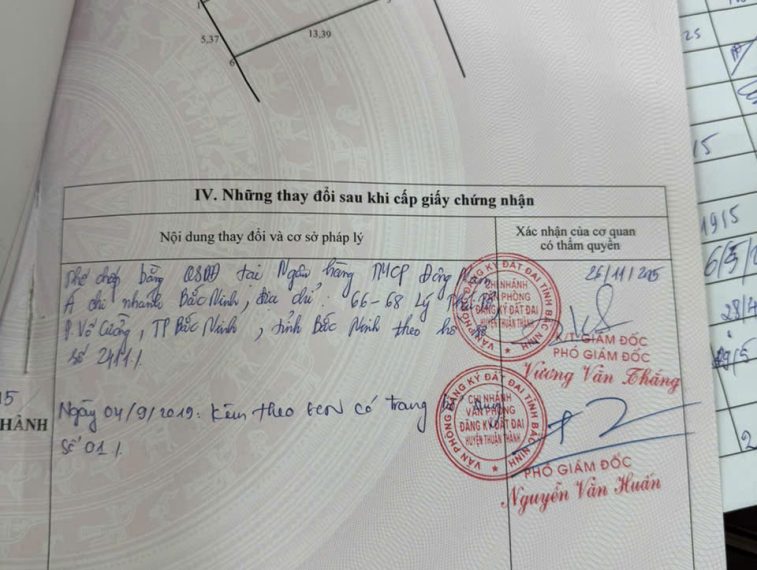 5,37
13,39
6
IV. Những thay đổi sau khi cấp giấy chứng nhận
Nội dung thay đổi và cơ sở pháp lý
Xác nhận của cơ quan có thẩm quyền
Thế chấp bằng QSDĐ tại Ngân hàng TMCP Đông Nam
Á chi nhánh Bắc Ninh, địa chỉ: 66-68 Lý Thái Tổ
P. Võ Cường, TP Bắc Ninh, tỉnh Bắc Ninh theo hồ sơ
số 2411/.
26/11/2015
VĂN PHÒNG ĐĂNG KÝ ĐẤT ĐAI TỈNH BẮC NINH
CHI NHÁNH
VĂN PHÒNG
ĐĂNG KÝ ĐẤT ĐAI
HUYỆN THUẬN THÀNH
K/T GIÁM ĐỐC
PHÓ GIÁM ĐỐC
Vương Văn Thắng
Ngày 04/9/2019: Kèm theo GCN có trang bổ sung
số 01/.
VĂN PHÒNG ĐĂNG KÝ ĐẤT ĐAI TỈNH BẮC NINH
CHI NHÁNH
VĂN PHÒNG
ĐĂNG KÝ ĐẤT ĐAI
HUYỆN THUẬN THÀNH
PHÓ GIÁM ĐỐC
Nguyễn Văn Huấn
HÀNH